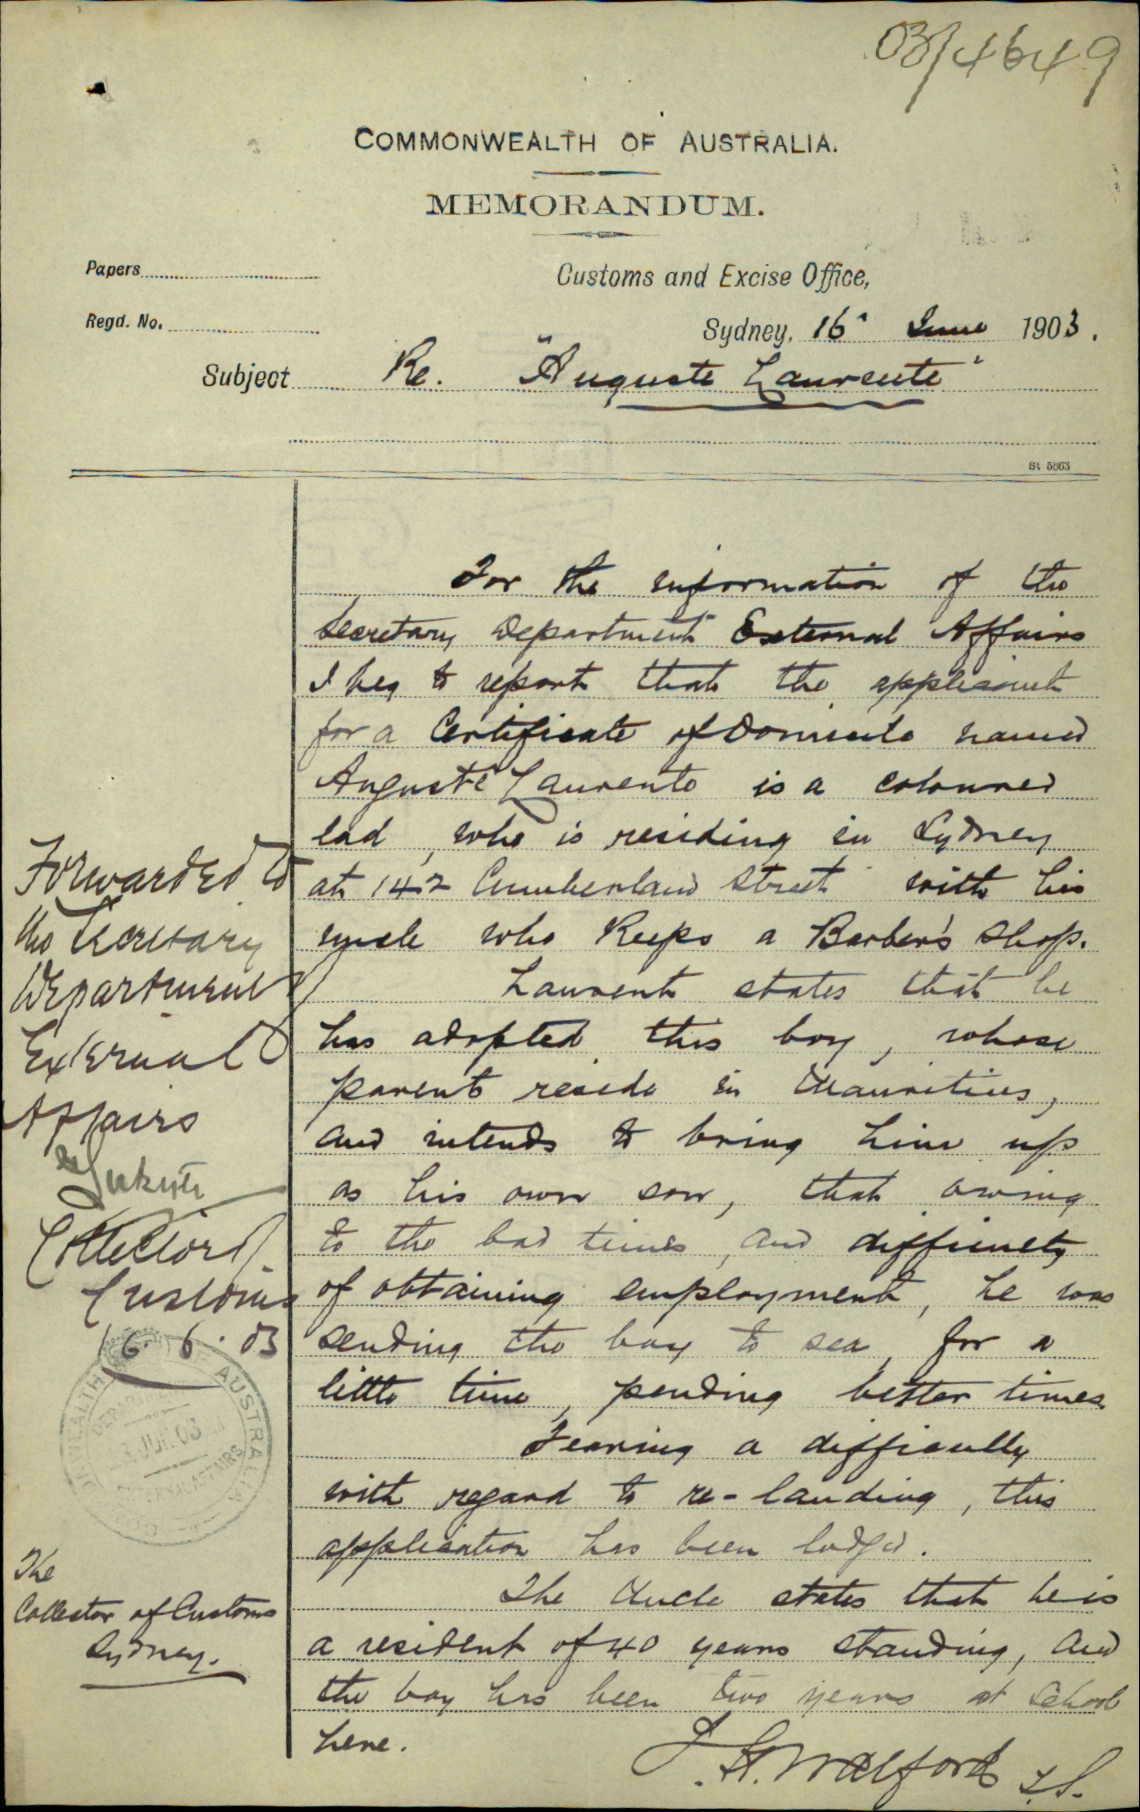 03/4649
COMMONWEALTH OF AUSTRALIA.
MEMORANDUM.
Papers
Customs and Excise Office,
Regd. No.
Sydney, 16 June 1903.
Subject Re. "Auguste Laurente"
St 5863
For the information of the
Secretary Department External Affairs
I beg to report that the applicant
for a Certificate of Domicile named
Auguste Laurente is a coloured
lad, who is residing in Sydney
at 142 Cumberland Street with his
uncle who keeps a Barber's shop.
Laurent states that he
has adopted this boy, whose
parents reside in Mauritius,
and intends to bring him up
as his own son, that owing
to the bad times, and difficulty
of obtaining employment, he was
sending the boy to sea, for a
little time, pending better times.
Fearing a difficulty
with regard to re-landing, this
application has been lodged.
The Uncle states that he is
a resident of 40 years standing, and
the boy has been two years at School
here.
Walford
Forwarded to
the Secretary
Department
External
Affairs
Collector
Customs
16.6.03
AUSTRALIA
JUN 03
The
Collector of Customs
Sydney.